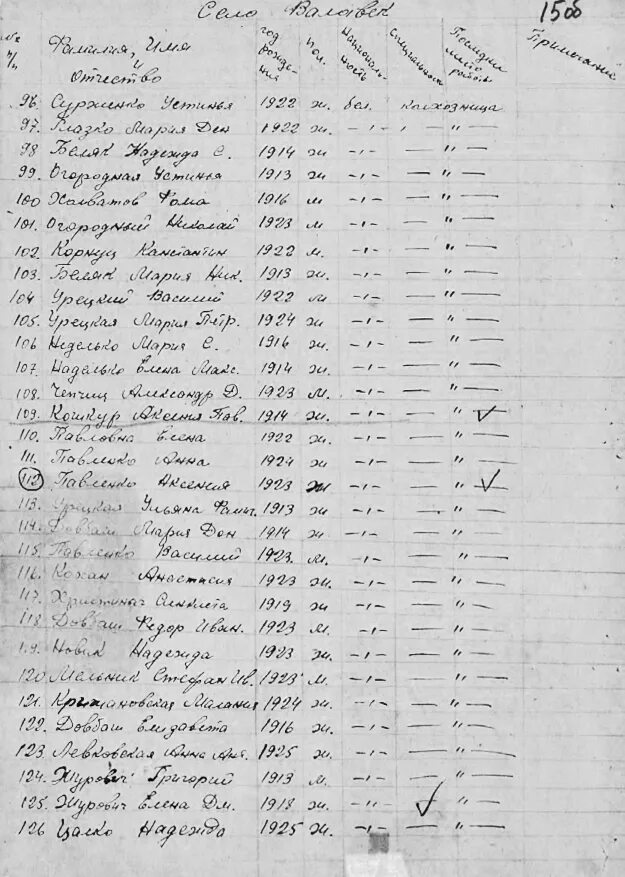 Село Валавск 150б
№ п/п Фамилия, Имя и отчество год рожде-ния пол. Националь-ность Специальность Последнее место работы Примечание
96. Сурженко Устинья 1922 ж. бел. колхозница
97. Глазко Мария Ден 1922 ж. -"- — " —
98 Беляк Надежда С. 1914 ж -"- — " —
99. Огородная Устинья 1913 ж -"- — " —
100 Холватов Фома 1916 м -"- — " —
101. Огородный Николай 1923 м -"- — " —
102. Корнуц Канстантин 1922 м. -"- — " —
103. Беляк Мария Ник. 1913 ж. -"- — " —
104 Урецкий Василий 1922 м -"- — " —
105. Урецкая Мария Петр. 1924 ж -"- — " —
106 Неделько Мария С. 1916 ж. -"- — " —
107. Наделько Елена Макс. 1914 ж. -"- — " —
108. Чепчиц Александр Д. 1923 м. -"- — " —
109. Кошкур Аксения Пав. 1914 ж. -"- — " — ✓
110. Павловна Елена 1922 ж. -"- — " —
111. Павленко Анна 1924 ж -"- — " —
112 Павленко Аксения 1923 ж -"- — " — ✓
113. Урецкая Ульяна 1913 ж -"- — " —
114. Довбаш Мария Дон 1914 ж -"- — " —
115. Павленко Василий 1923. м. -"- — " —
116. Кохан Анастасия 1923 ж. -"- — " —
117. 1919 ж -"- — " —
118 Довбаш Федор Иван. 1923 м. -"- — " —
119. Новик Надежда 1923 ж. -"- — " —
120 Мельник Стефан Ив. 1923 м. -"- — " —
121. Крижановская Малания 1924 ж. -"- — " —
122. Довбаш Елизавета 1916 ж. -"- — " —
123. Левковская Анна Ант. 1925 ж. -"- — " —
124. Журович Григорий 1913 м. -"- — " —
125. Журович Елена Дм. 1918 ж. -"- ✓ — " —
126 Цалко Надежда 1925 ж. -"- — " —